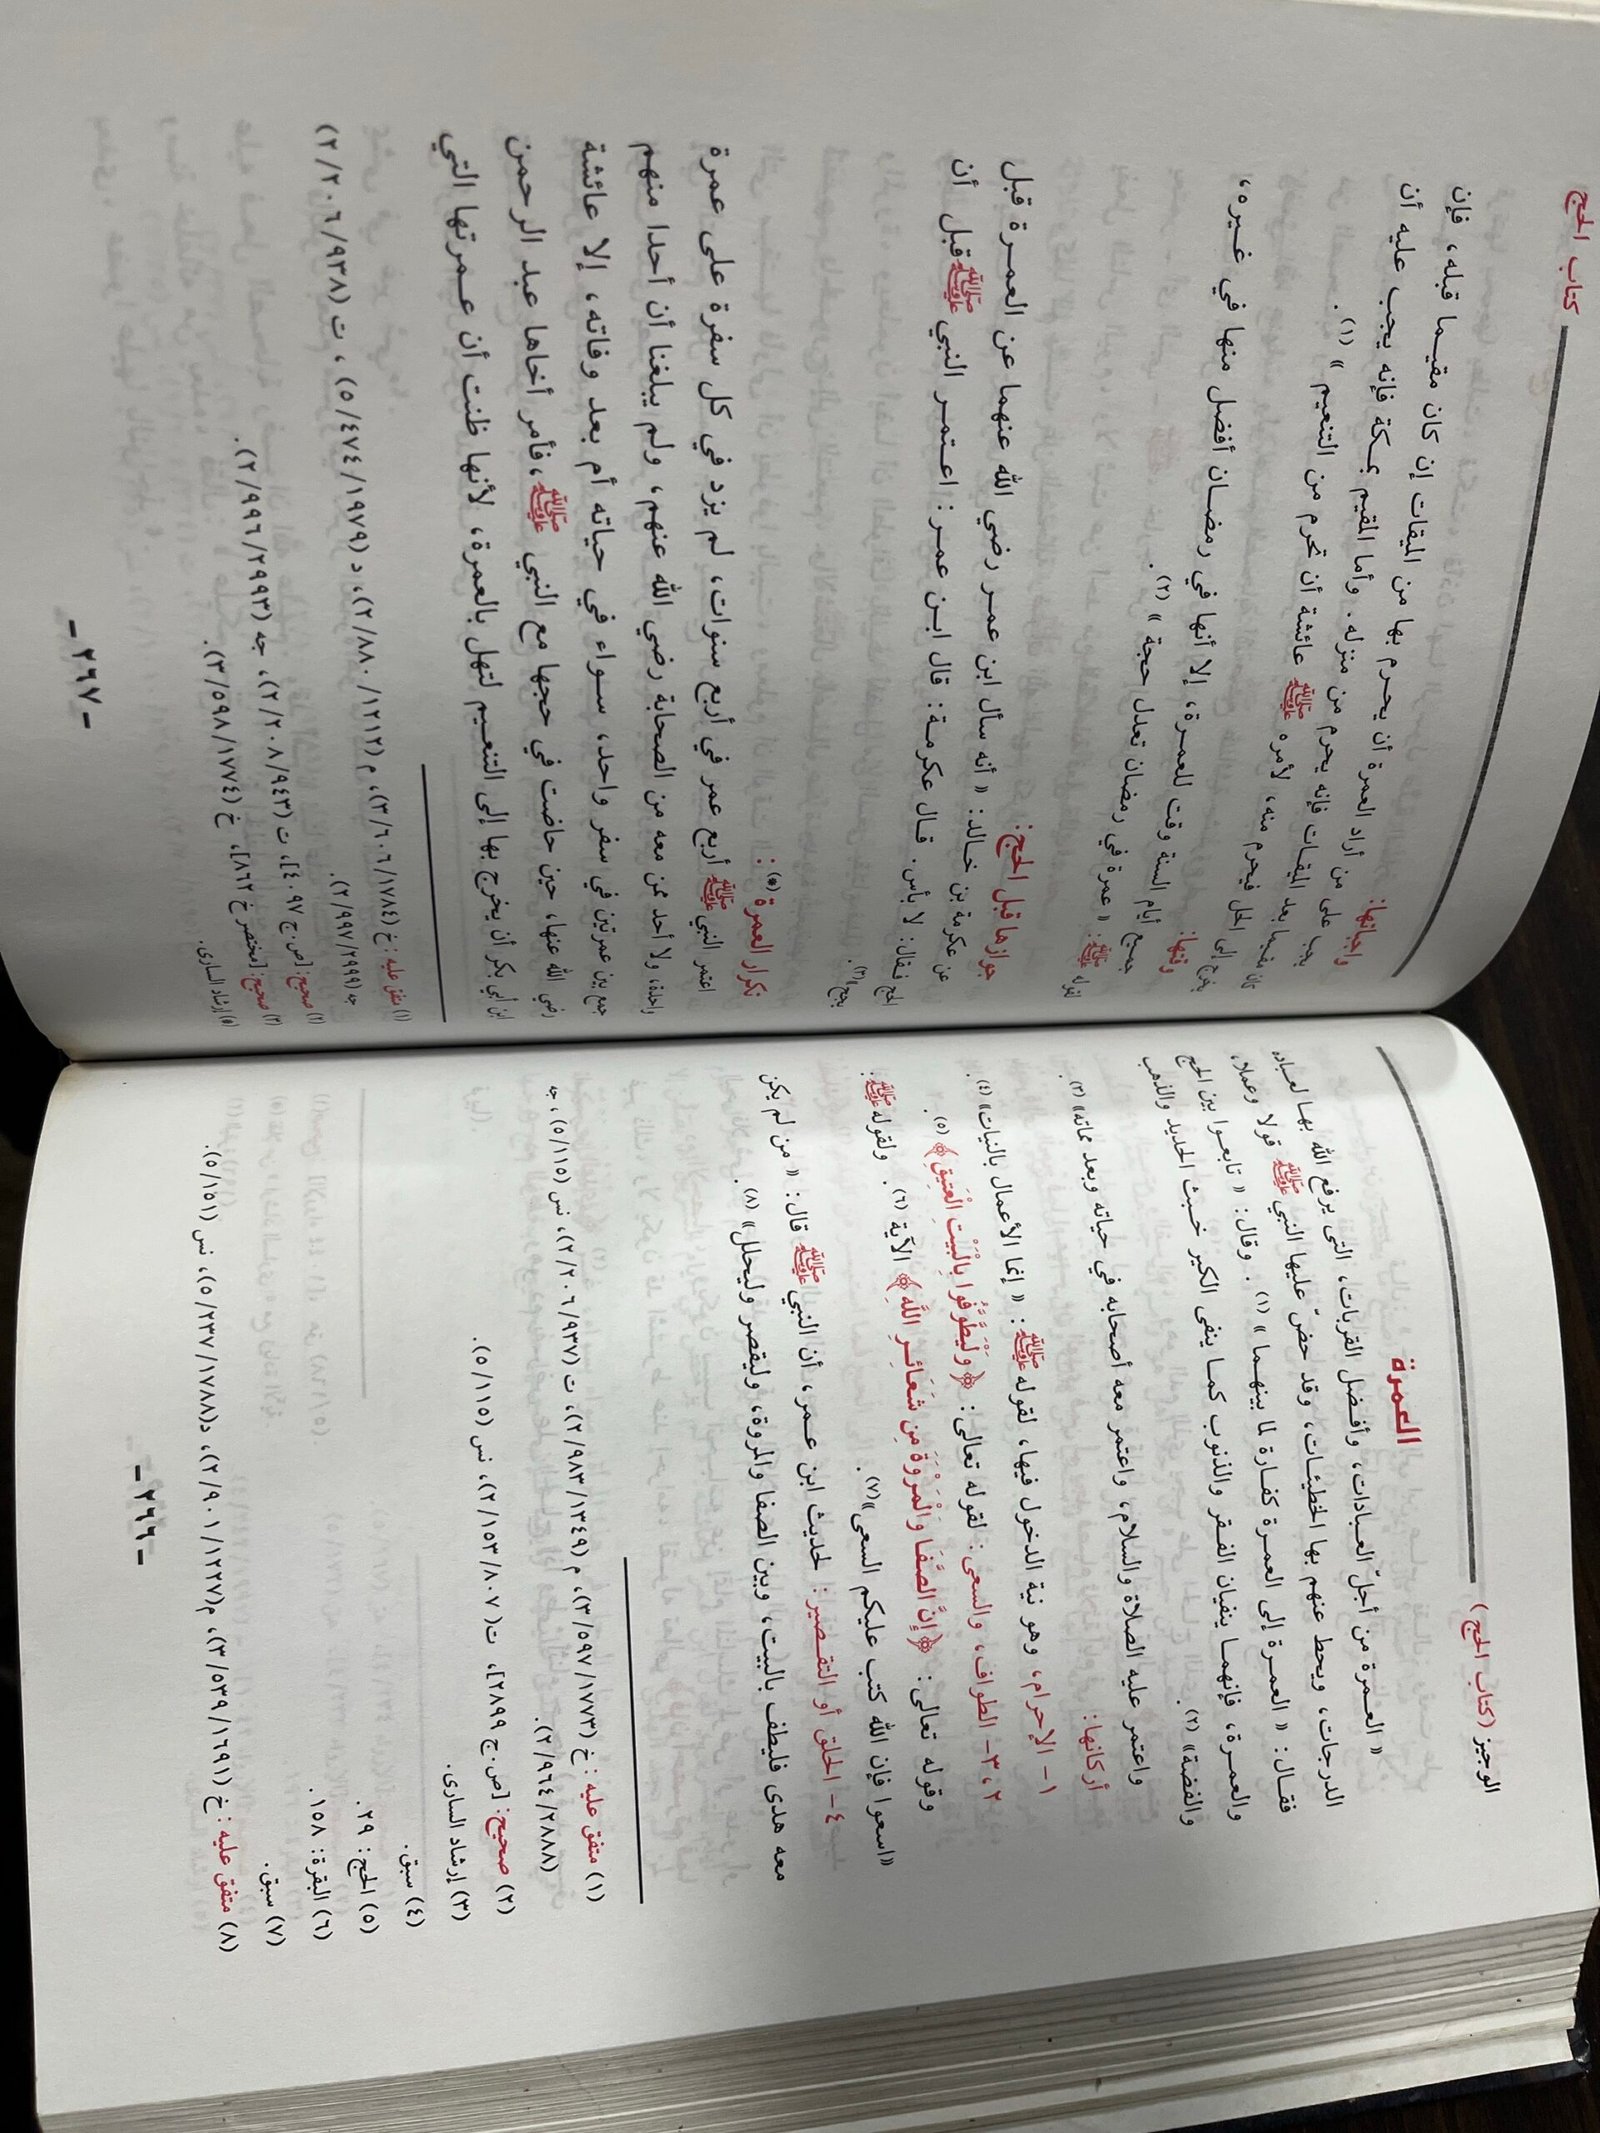 الوجيز (كتاب الحج)
العمرة
« العمرة من أجلّ العبادات، وأفضل القربات، التى يرفع الله بها لعباده
الدرجات، ويحط عنهم بها الخطيئات، وقد حضّ عليها النبي ﷺ قولا وعملا،
فقال: « العمرة إلى العمرة كفارة لما بينهما » (١). وقال: « تابعوا بين الحج
والعمرة، فإنهما ينفيان الفقر والذنوب كما ينفى الكير خبث الحديد والذهب
والفضة» (٢).
واعتمر عليه الصلاة والسلام، واعتمر معه أصحابه في حياته وبعد مماته» (٣).
أركانها:
١- الإحرام، وهو نية الدخول فيها، لقوله ﷺ: « إنما الأعمال بالنيات» (٤).
٢، ٣- الطواف، والسعى: لقوله تعالى: ﴿وَلْيَطَّوَّفُوا بِالْبَيْتِ الْعَتِيقِ﴾ (٥).
وقوله تعالى: ﴿إِنَّ الصَّفَا وَالْمَرْوَةَ مِن شَعَائِرِ اللَّهِ﴾ الآية (٦). ولقوله ﷺ:
«اسعوا فإن الله كتب عليكم السعى» (٧).
٤- الحلق أو التقصير: لحديث ابن عمر، أن النبي ﷺ قال: « من لم يكن
معه هدى فليطف بالبيت، وبين الصفا والمروة، وليقصر وليحلل» (٨).
(١) متفق عليه : خ (١٧٧٣/ ٥٩٧/ ٣)، م (١٣٤٩/ ٩٨٣/ ٢)، ت (٩٣٧/ ٢٠٦/ ٢)، نس (١١٥/ ٥)، جه
(٢٨٨٨/ ٩٦٤/ ٢).
(٢) صحيح: [ص.ج ٢٨٩٩]، ت (٨٠٧/ ١٥٣/ ٢)، نس (١١٥/ ٥).
(٣) إرشاد السارى.
(٤) سبق.
(٥) الحج: ٢٩.
(٦) البقرة: ١٥٨.
(٧) سبق.
(٨) متفق عليه : خ (١٦٩١/ ٥٣٩/ ٣)، م(١٢٢٧/ ٩٠١/ ٢)، د(١٧٨٨/ ٢٣٧/ ٥)، نس (١٥١/ ٥).
- ٢٦٦ -
كتاب الحج
واجباتها:
يجب على من أراد العمرة أن يحرم بها من الميقات إن كان مقيما قبله، فإن
كان مقيما بعد الميقات فإنه يحرم من منزله. وأما المقيم بمكة فإنه يجب عليه أن
يخرج إلى الحل فيحرم منه، لأمره ﷺ عائشة أن تحرم من التنعيم » (١).
وقتها:
جميع أيام السنة وقت للعمرة، إلا أنها في رمضان أفضل منها في غيره،
لقوله ﷺ: « عمرة في رمضان تعدل حجة » (٢).
جوازها قبل الحج:
عن عكرمة بن خالد: « أنه سأل ابن عمر رضي الله عنهما عن العمرة قبل
الحج فقال: لا بأس. قال عكرمة: قال ابن عمر: اعتمر النبي ﷺ قبل أن
يحج»(٣).
تكرار العمرة (*):
اعتمر النبي ﷺ أربع عمر في أربع سنوات، لم يزد في كل سفرة على عمرة
واحدة، ولا أحد ممن معه من الصحابة رضي الله عنهم، ولم يبلغنا أن أحدا منهم
جمع بين عمرتين في سفر واحد، سواء في حياته أم بعد وفاته، إلا عائشة
رضي الله عنها، حين حاضت في حجها مع النبي ﷺ، فأمر أخاها عبد الرحمن
ابن أبي بكر أن يخرج بها إلى التنعيم لتهل بالعمرة، لأنها ظنت أن عمرتها التي
(١) متفق عليه : خ (١٧٨٤/ ٦٠٦/ ٣)، م (١٢١٢/ ٨٨٠/ ٢)، د (١٩٧٩/ ٤٧٤/ ٥) ، ت (٩٣٨/ ٢٠٦/ ٢)
جه (٢٩٩٩/ ٩٩٧/ ٢).
(٢) صحيح: [ص.ج ٤٠٩٧]، ت (٩٤٣/ ٢٠٨/ ٢)، جه (٢٩٩٣/ ٩٩٦/ ٢).
(٣) صحيح: [مختصر خ ٨٦٢]، خ (١٧٧٤/ ٥٩٨/ ٣).
(*) إرشاد السارى.
- ٢٦٧ -